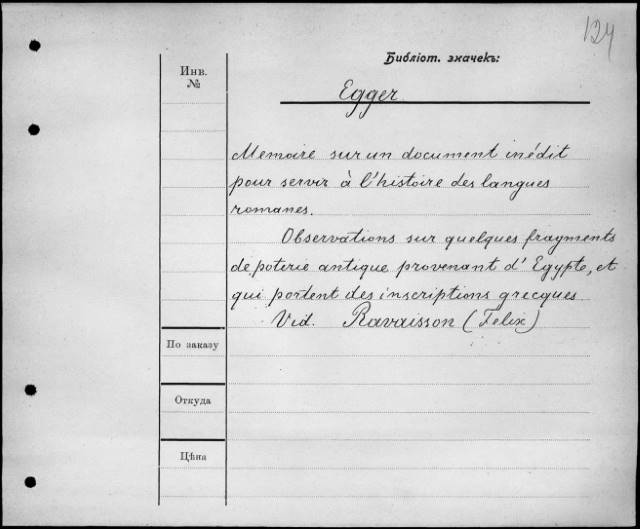 124
Библіот. значекъ:
Инв.
№
Egger
Memoire sur un document inédit
pour servir à l'histoire des langues
romanes.
Observations sur quelques fragments
de poterie antique provenant d'Egypte, et
qui portent des inscriptions grecques
Vid. Ravaisson (Felix)
По заказу
Откуда
Цѣна